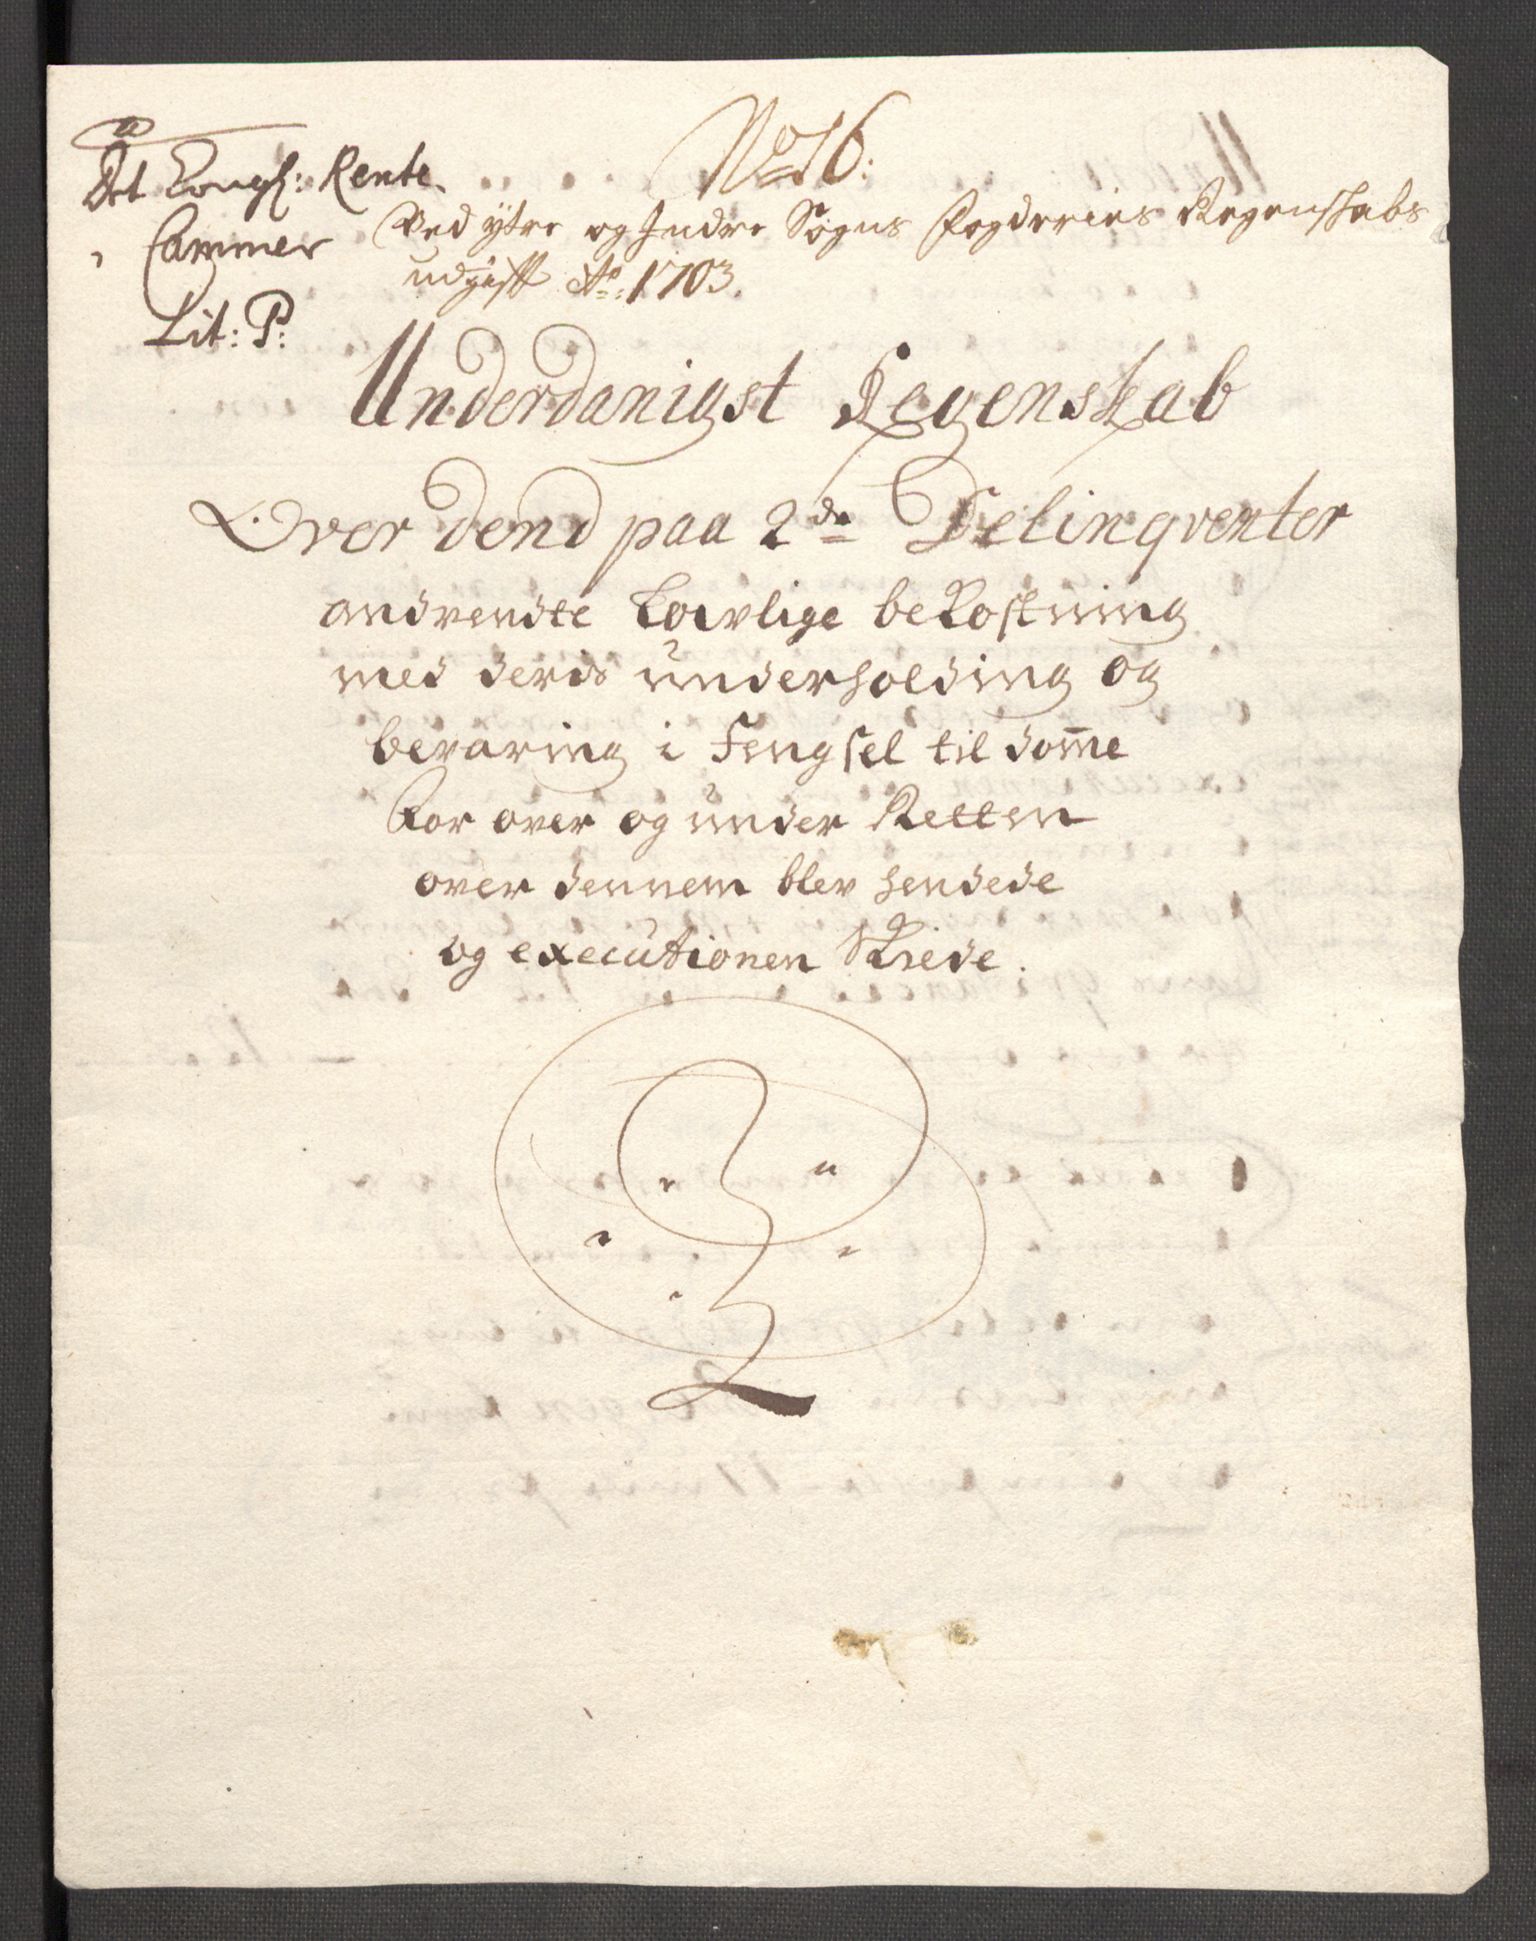 No 16:
Det Kongl: Rente
Cammer
Lit: P:
Ved ytre og Indre Sogns Fogderies Regenskabs
udgift Ao: 1703.
Underdanigst Regenskab
Over dend paa 2de Delinqventer
andvendte Lowlige bekostning
med deris underholding og
bevaring i Fengsel til domme
for over og under Retten
over dennem blev hendede
og executionen skiede.